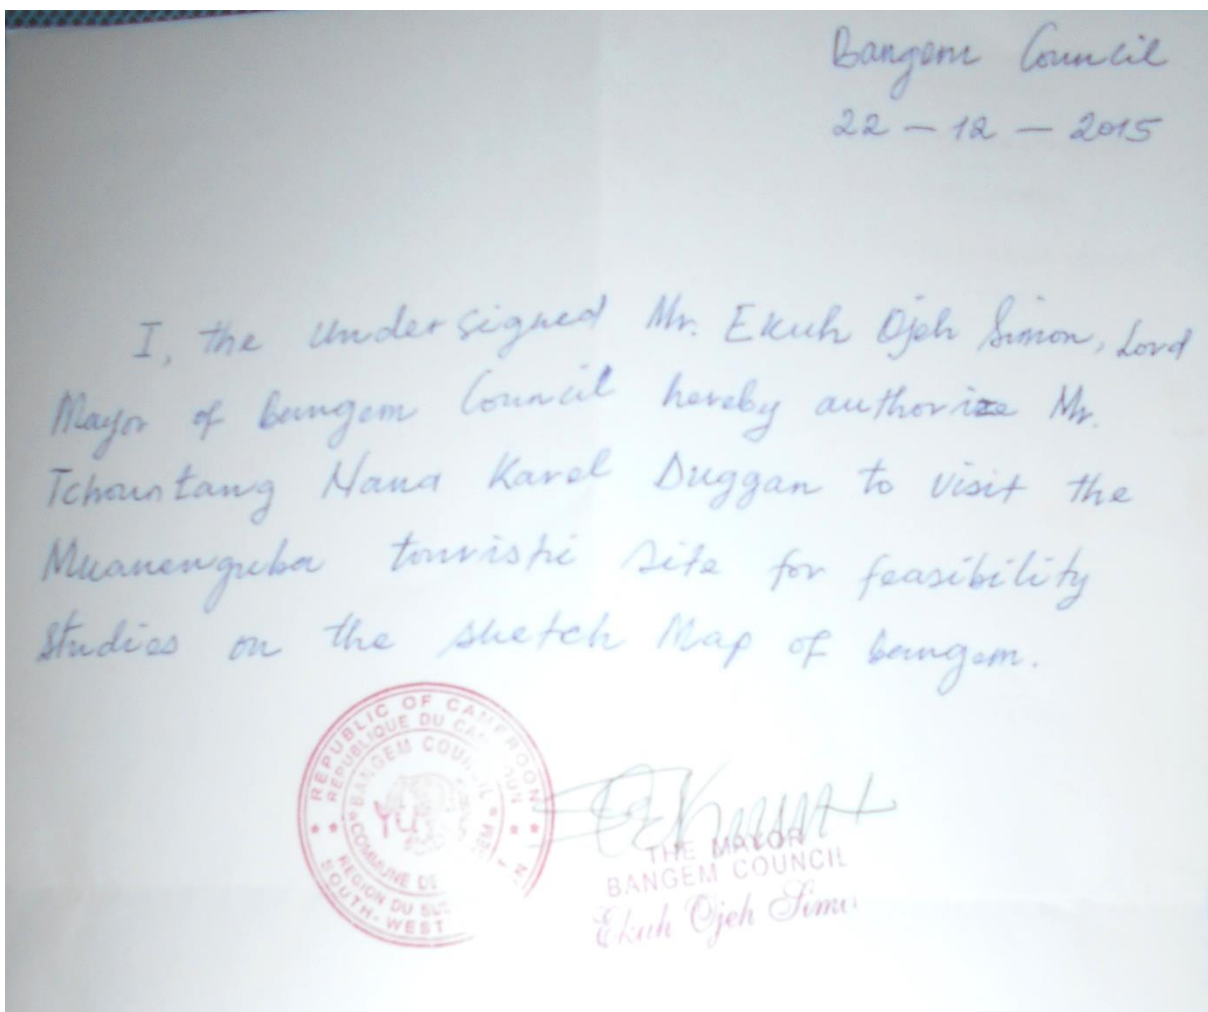 Bangem Council
22 - 12 - 2015
I, the undersigned Mr. Ekuh Ojeh Simon, Lord
Mayor of bangem Council hereby authorize Mr.
Tchountang Nana Karel Duggan to visit the
Muanenguba touristic site for feasibility
studies on the sketch Map of bangem.
REPUBLIC OF CAMEROON
REPUBLIQUE DU
BANGEM COUNCIL
COMMUNE DE
REGION DU
SOUTH-WEST
THE MAYOR
BANGEM COUNCIL
Ekuh Ojeh